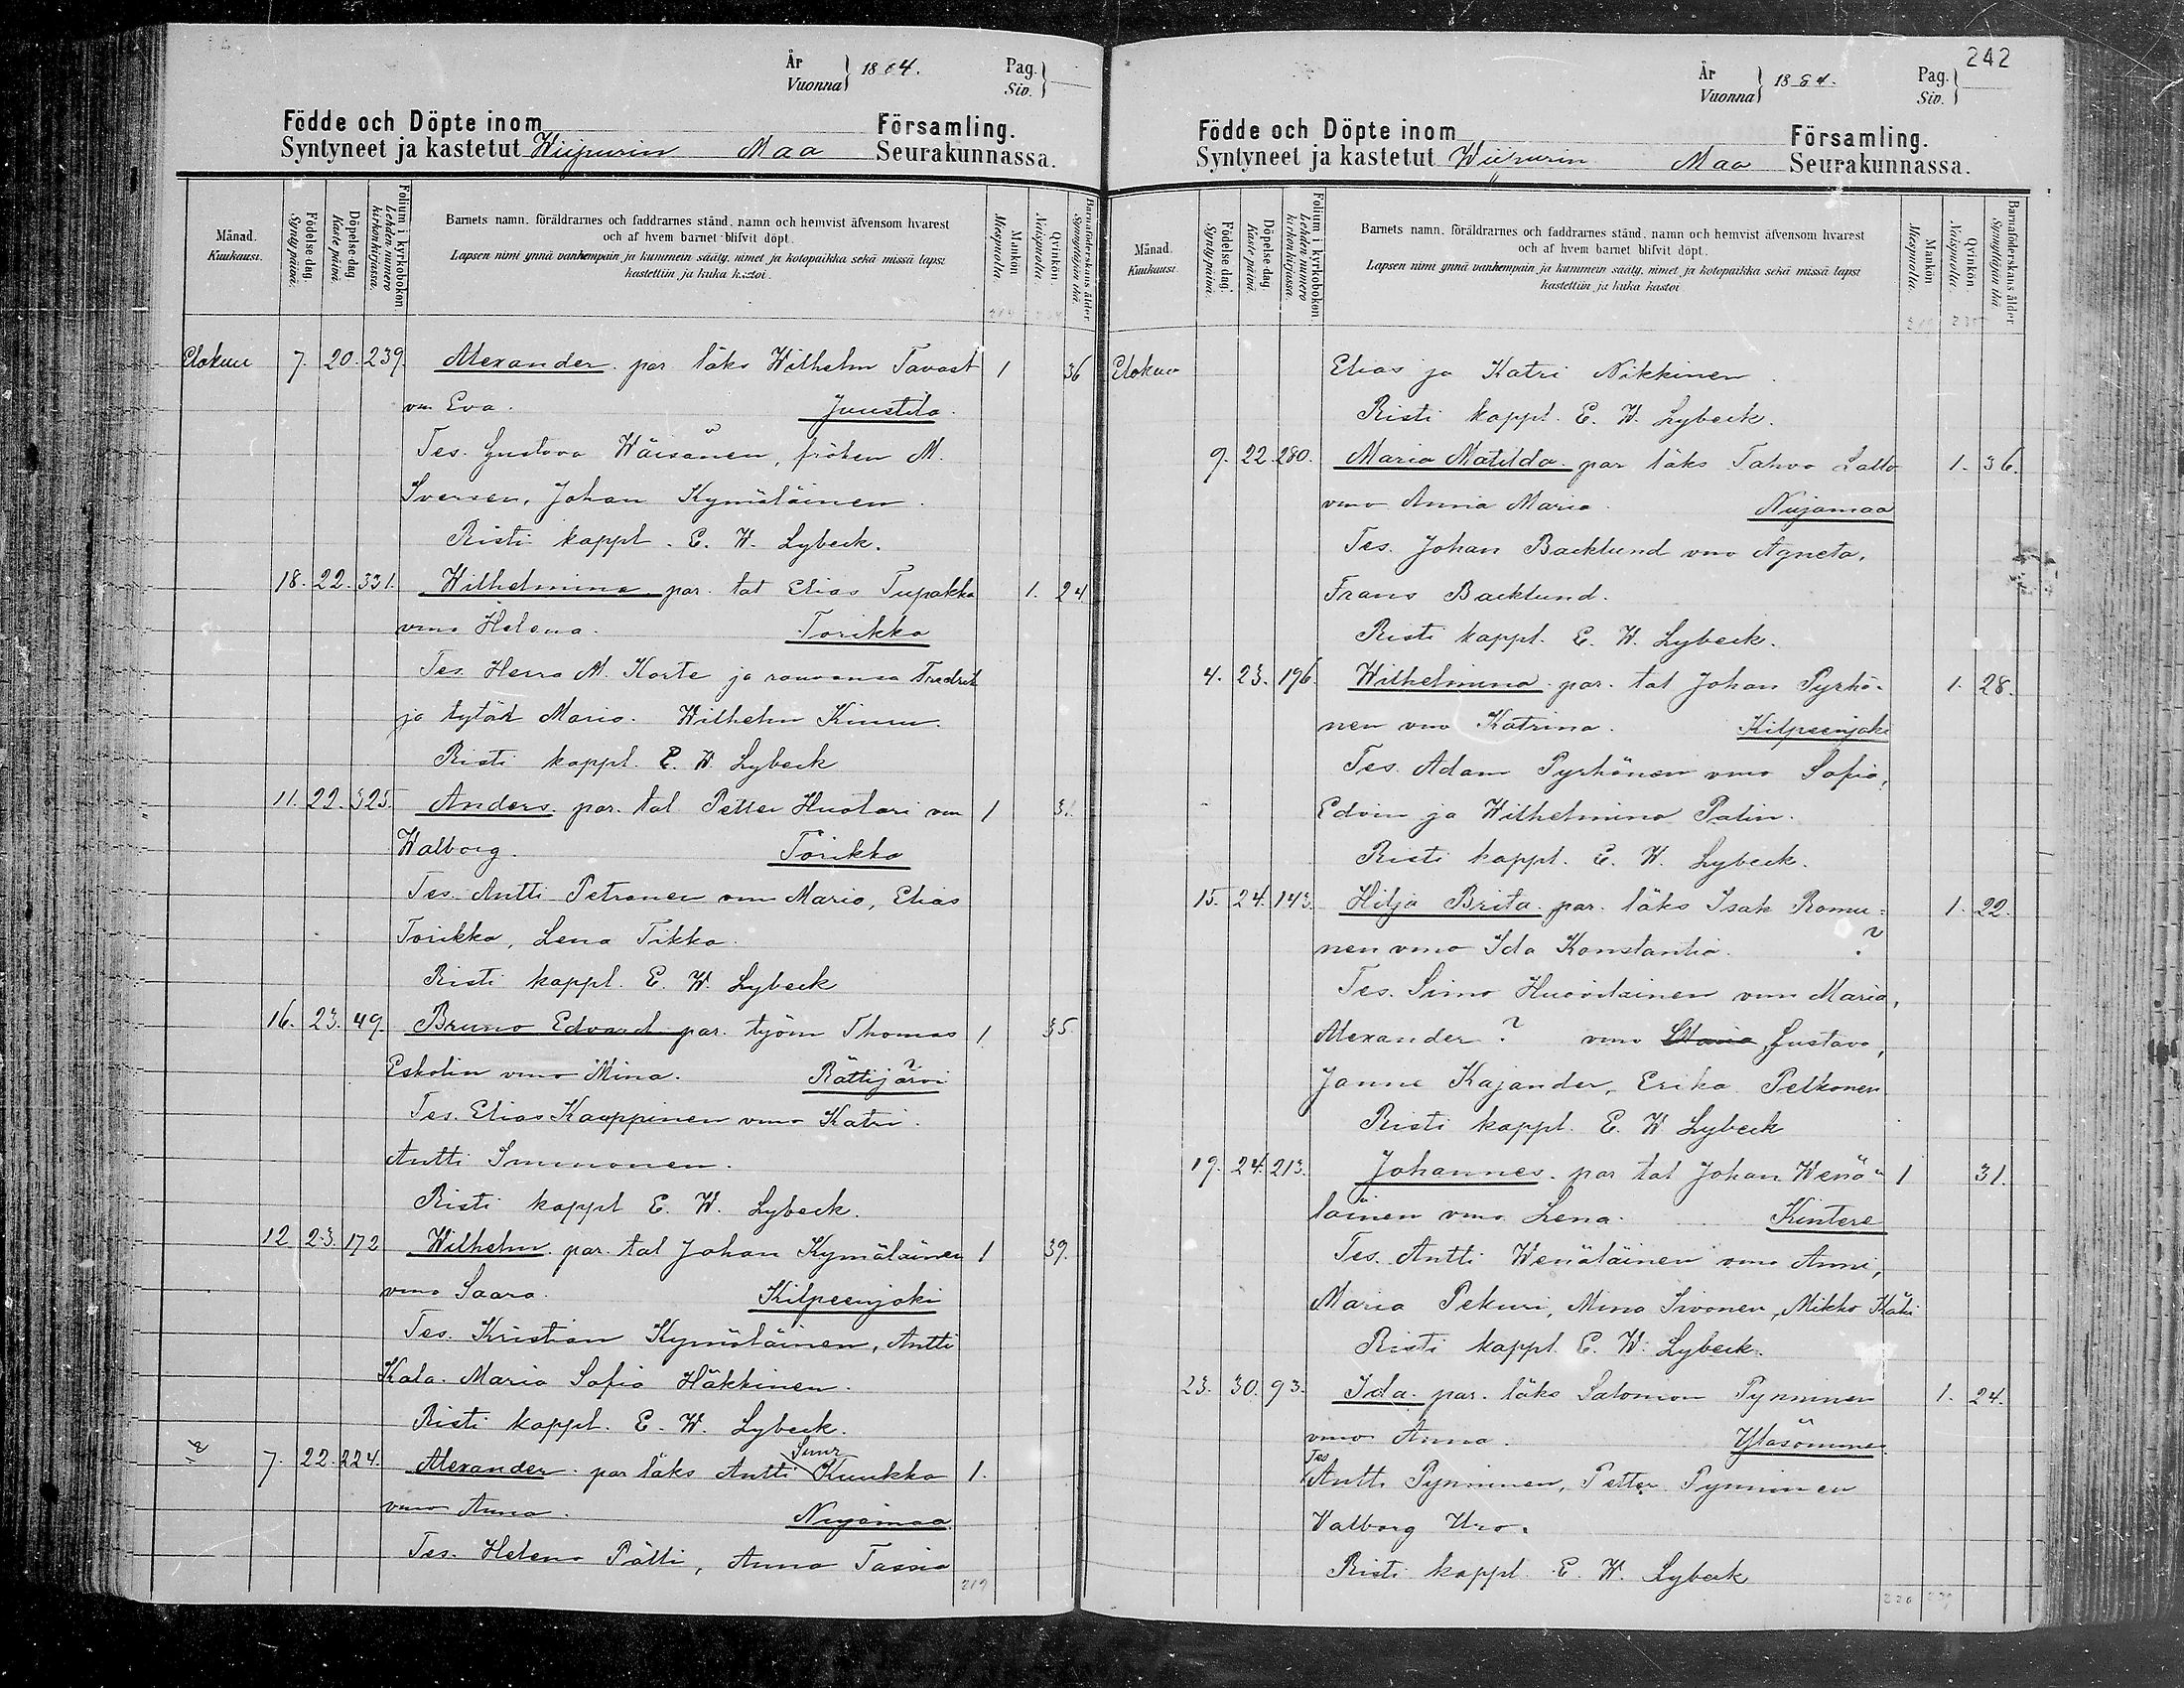 År
Vuonna } 1884.
Pag.
Siv. }
Födde och Döpte inom Församling.
Syntyneet ja kastetut Wiipurin Maa Seurakunnassa.
Månad.
Kuukausi.
Födelse dag.
Synty päivä.
Döpelse dag.
Kaste päivä.
Folium i kyrkoboken.
Lehden numero kirkonkirjassa.
Barnets namn, föräldrarnes och faddrarnes stånd, namn och hemvist äfvensom hvarest
och af hvem barnet blifvit döpt.
Lapsen nimi ynnä vanhempain ja kummein sääty, nimet ja kotopaikka sekä missä lapsi
kastettiin ja kuka kastoi.
Mankön.
Miespuolia.
Qvinkön.
Naispuolia.
Barnaföderskans ålder
Synnyttäjän ikä
Elokuu 7. 20. 239. Alexander par. läks Wilhelm Tavast 1 36
vm Eva. Juustila.
Tes. Gustava Wäisänen, fröken M.
Iversen, Johan Kymäläinen.
Risti kappl. E. W. Lybeck.
18. 22. 331. Wilhelmina par. tal Elias Tupakka 1. 24
vmo Helena. Torikka
Tes. Herra M. Korte ja rouvansa Fredrik
ja tytär Maria. Wilhelm Kinnu.
Risti kappl. E. W. Lybeck
11. 22. 325. Anders par. tal Petter Huotari vm 1 3.
Walborg. Torikka
Tes. Antti Petronen vm Maria, Elias
Torikka, Lena Tikka.
Risti kappl. E. W. Lybeck
16. 23. 49. Bruno Edvard par. työm Thomas 1 35
Eskolin vmo Mina. Rättijärvi
Tes. Elias Kauppinen vmo Katri.
Antti Immonen.
Risti kappl E. W. Lybeck.
12 23. 172 Wilhelm par. tal Johan Kymäläinen 1 39.
vmo Saara. Kilpeenjoki
Tes. Kristian Kymäläinen, Antti
Kala. Maria Sofia Häkkinen.
Risti kappl. E. W. Lybeck.
Suur
7. 22. 224. Alexander par läks Antti Kuukka 1.
vmo Anna. Nuijamaa
Tes. Helena Pälli, Anna Tassia
219
242
År
Vuonna } 1884.
Pag.
Siv. }
Födde och Döpte inom Församling.
Syntyneet ja kastetut Wiipurin Maa Seurakunnassa.
Månad.
Kuukausi.
Födelse dag.
Synty päivä.
Döpelse dag.
Kaste päivä.
Folium i kyrkoboken.
Lehden numero kirkonkirjassa.
Barnets namn, föräldrarnes och faddrarnes stånd, namn och hemvist äfvensom hvarest
och af hvem barnet blifvit döpt.
Lapsen nimi ynnä vanhempain ja kummein sääty, nimet ja kotopaikka sekä missä lapsi
kastettiin ja kuka kastoi
Mankön
Miespuolia.
Qvinkön
Naispuolia.
Barnaföderskans ålder
Synnyttäjän ikä
Elokuu Elias ja Katri Nikkinen.
Risti kappl. E. W. Lybeck.
9. 22. 280. Maria Matilda par läks Tahvo Lallo 1. 36.
vmo Anna Maria. Nuijamaa
Tes. Johan Backlund vmo Agneta,
Frans Backlund.
Risti kappl. E. W. Lybeck.
4. 23. 196. Wilhelmina par. tal Johan Pyrhö- 1. 28.
nen vmo Katrina. Kilpeenjoki
Tes. Adam Pyrhönen vmo Sofia,
Edvin ja Wilhelmina Palin.
Risti kappl. E. W. Lybeck.
15. 24. 143. Hilja Brita par. läks Isak Romu- 1. 22.
nen vmo Ida Konstantia. ?
Tes. Simo Huovilainen vmo Maria,
Alexander ? vmo Maria Gustava,
Janne Kajander, Erika Pelkonen
Risti kappl. E. W. Lybeck
19. 24. 213. Johannes par tal Johan Wenä- 1 31.
läinen vmo Lena. Kintere
Tes. Antti Wenäläinen vmo Anni,
Maria Pekuri, Mina Sivonen, Mikko Käki
Risti kappl. E. W. Lybeck.
23. 30. 93. Ida par. läks Salomon Pynninen 1. 24.
vmo Anna. Yläsomme.
Tes
Antti Pynninen, Petter Pynninen
Valborg Uro.
Risti kappl. E. W. Lybeck